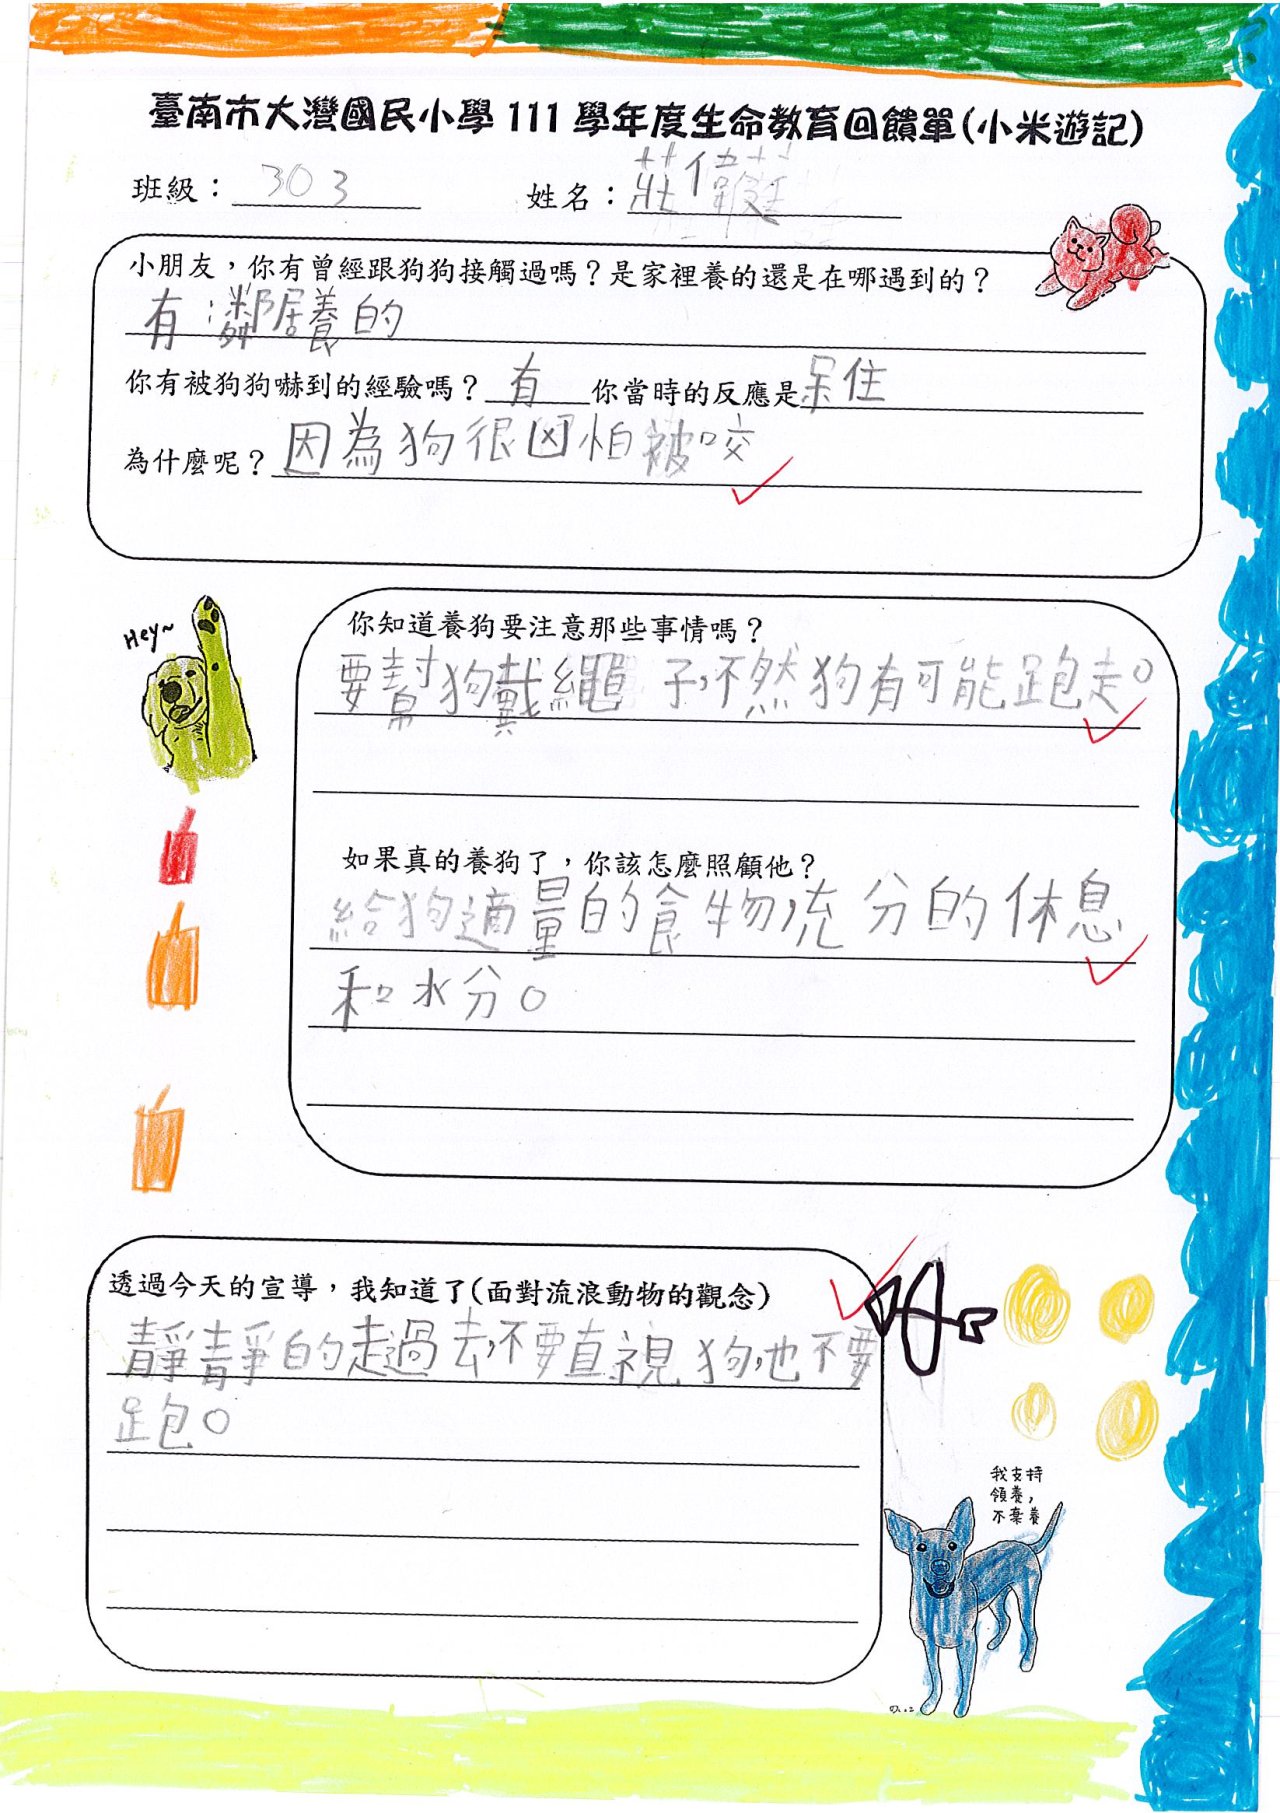 臺南市大灣國民小學 111 學年度生命教育回饋單(小米遊記)
班級：303 姓名：莊偉莛
小朋友，你有曾經跟狗狗接觸過嗎？是家裡養的還是在哪遇到的？
有：鄰居養的
你有被狗狗嚇到的經驗嗎？有 你當時的反應是呆住
為什麼呢？因為狗很凶怕被咬
Hey~
你知道養狗要注意那些事情嗎？
要幫狗戴繩子，不然狗有可能跑走。
如果真的養狗了，你該怎麼照顧他？
給狗適量的食物，充分的休息
和水分。
透過今天的宣導，我知道了(面對流浪動物的觀念)
靜靜的走過去，不要直視狗，也不要
跑。
我支持
領養，
不棄養